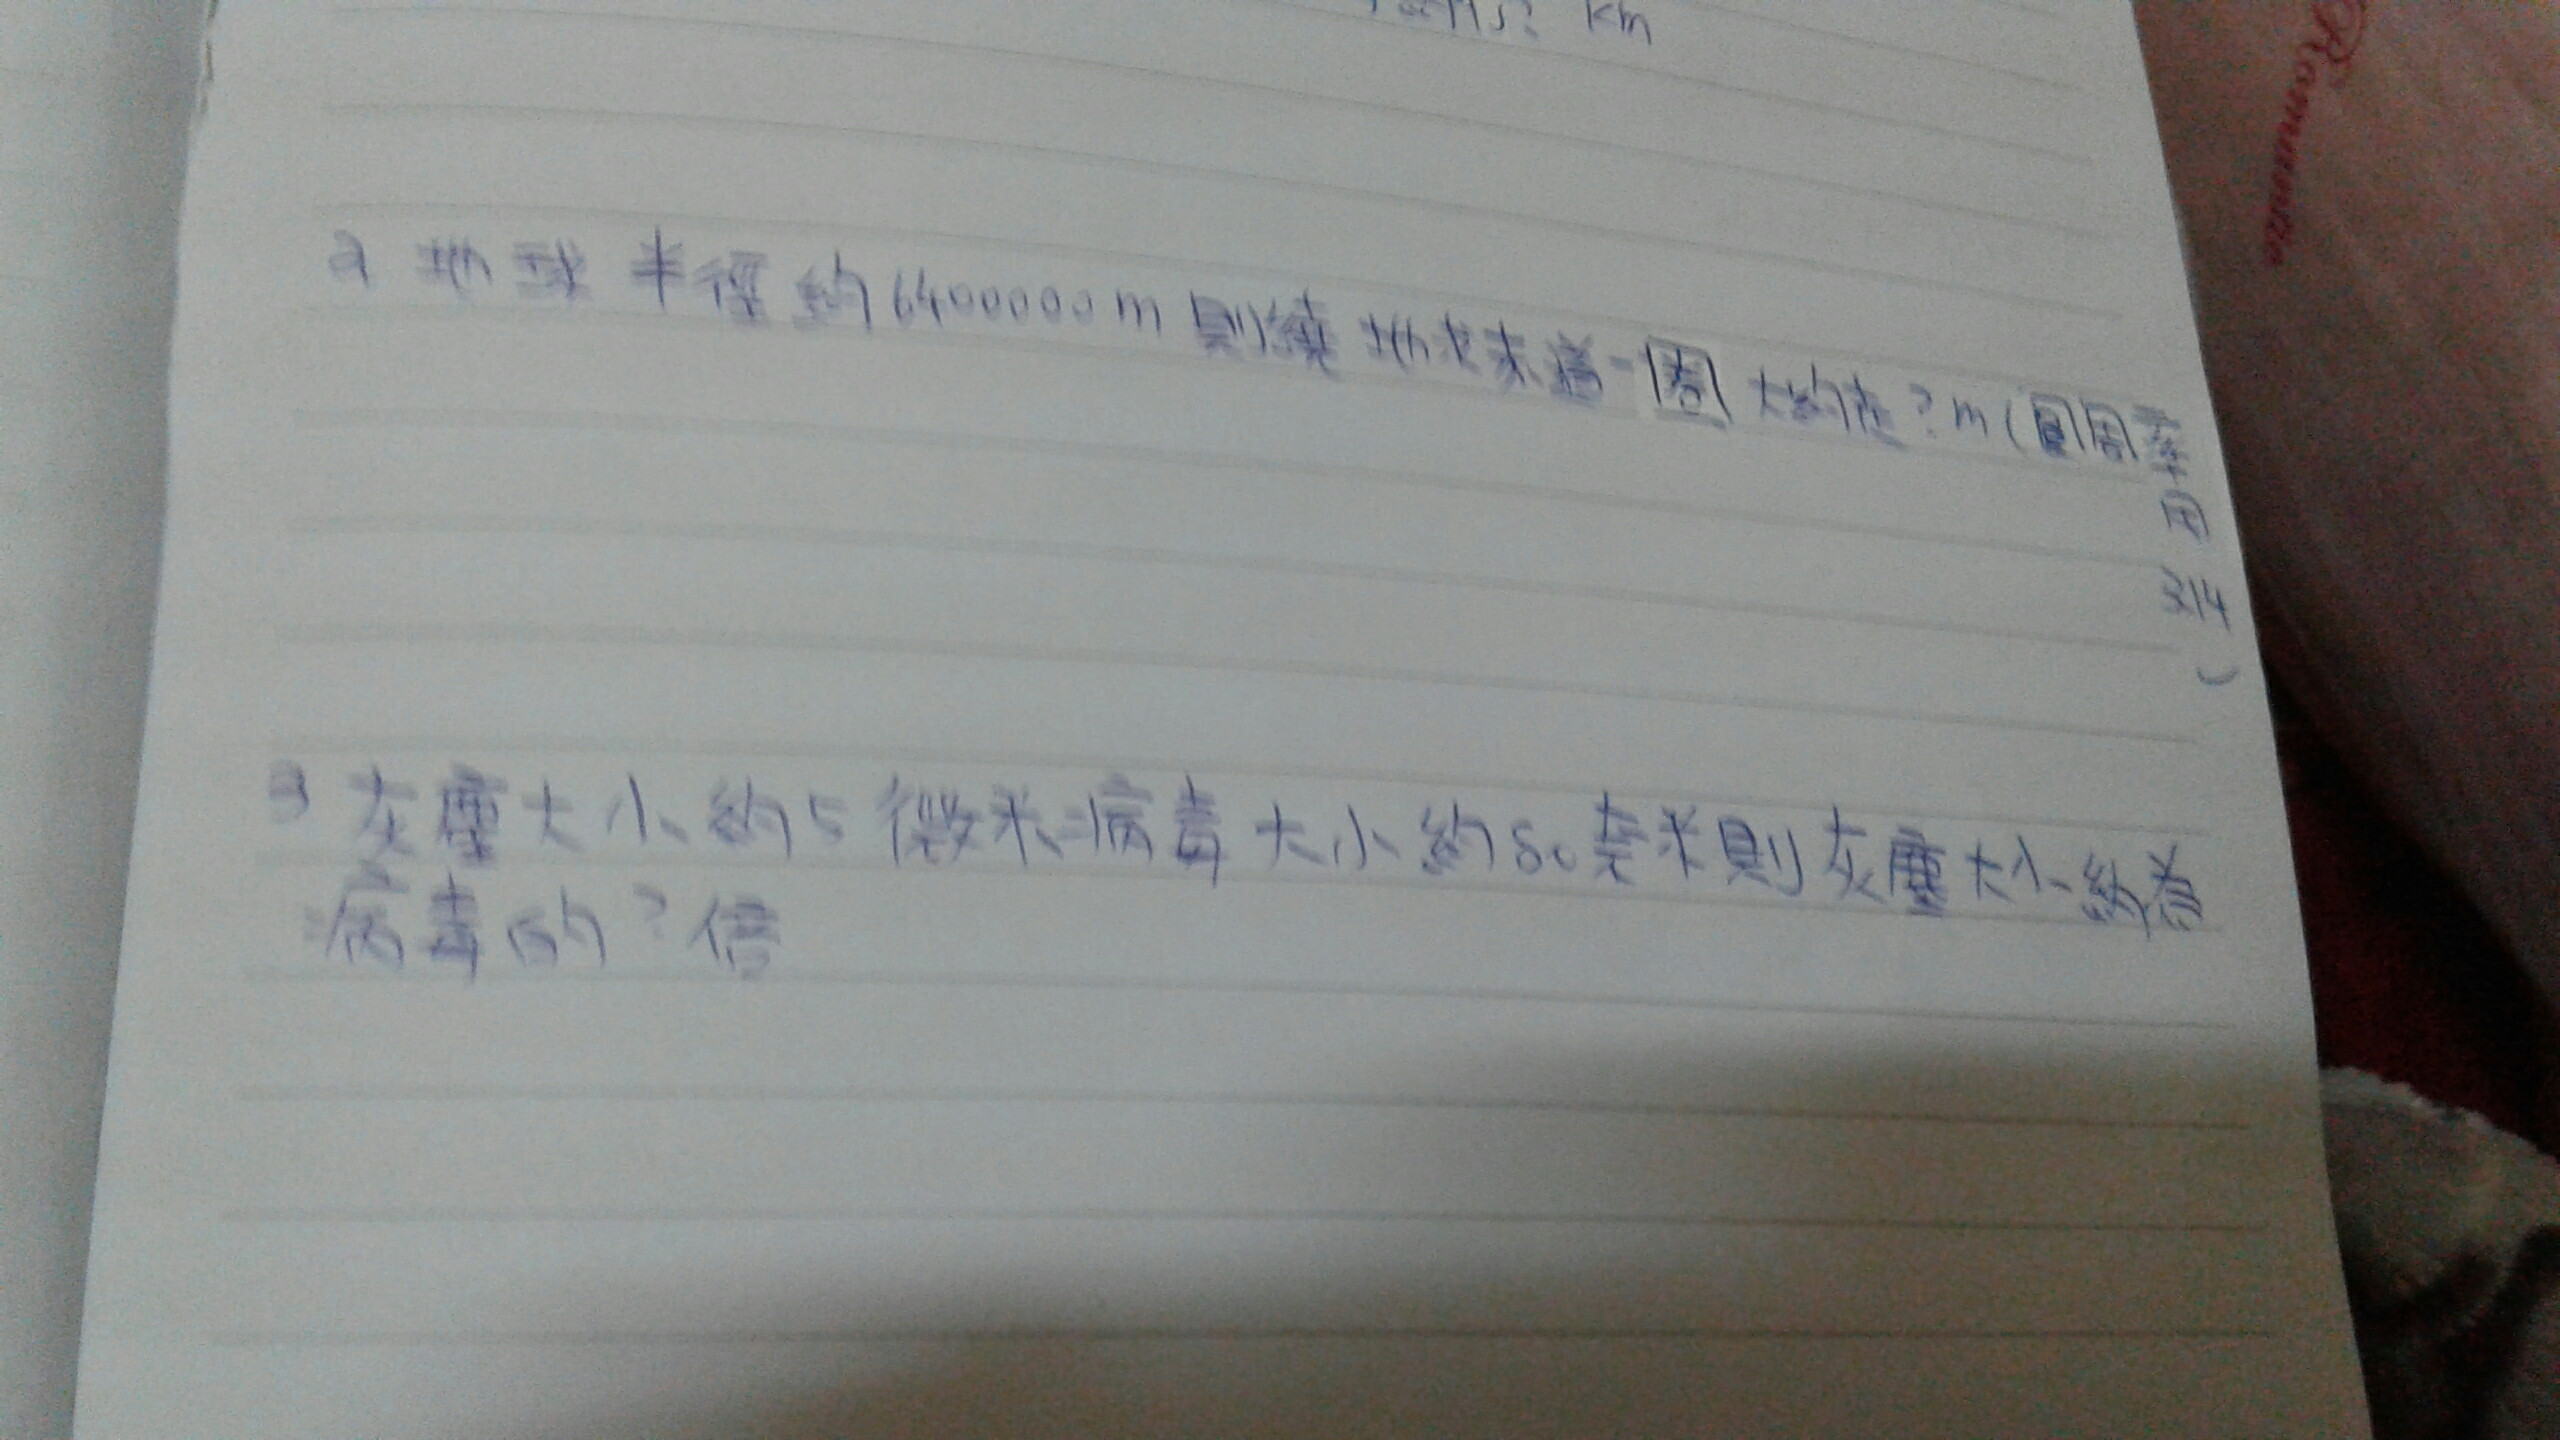 km
2 地球半徑約6400000m則繞地球赤道一圈大約走?m(圓周率
用
3.14
)
3 灰塵大小約5微米病毒大小約50奈米則灰塵大小約為
病毒的?倍
Romantic